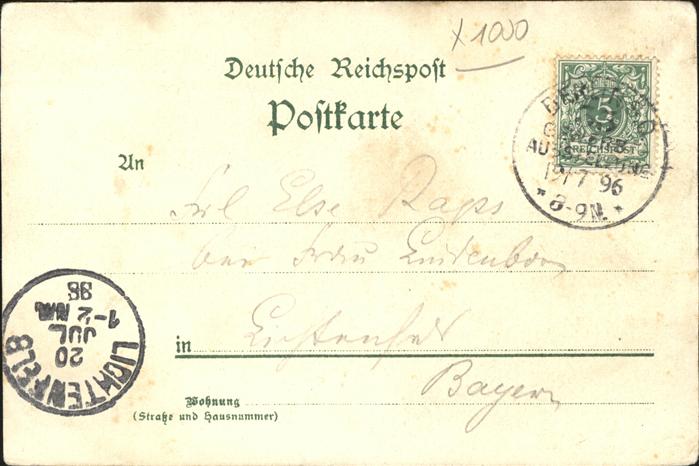 x 1000
Deutsche Reichspost
Postkarte
5
REICHSPOST
BERLIN S.O.
GEWERBE-
AUSSTELLUNG
19/7 96
* 8-9N. *
An
Frl Else Raps
bei Frau Lindenbor
in Lichtenfels
Bayern
Wohnung
(Straße und Hausnummer)
LICHTENFELS
20
JUL
1-2 NM.
96